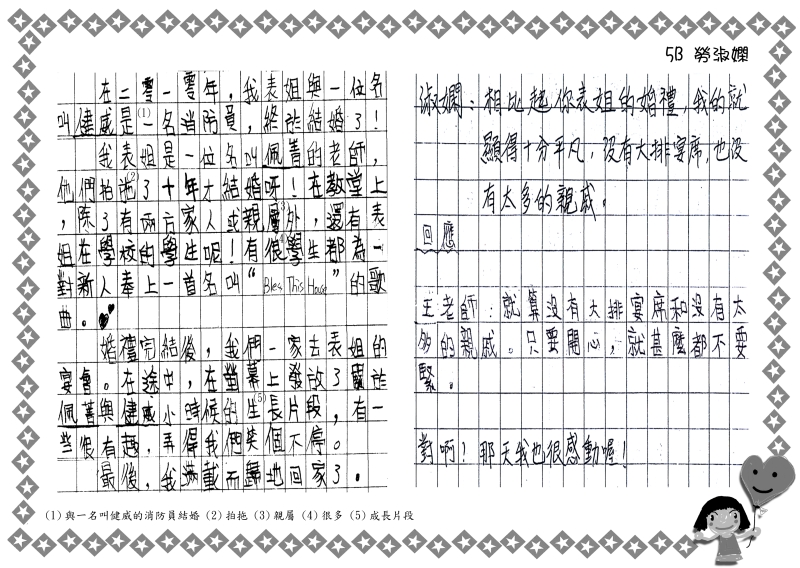 5B 勞淑嫻
在二零一零年，我表姐與一位名
叫健威是(1)一名消防員，終於結婚了！
我表姐是一位名叫佩善的老師，
他們拍拖(2)了十年才結婚呀！在教堂上
，除了有兩方家人或親屬(3)外，還有表
姐在學校的學生呢！有很(4)學生都為一
對新人奉上一首名叫“Bless This House”的歌
曲。
婚禮完結後，我們一家去表姐的
宴會。在途中，在螢幕上發放了關於
佩善與健威小時候的生長片段(5)，有一
些很有趣，弄得我們笑個不停。
最後，我滿載而歸地回家了。
淑嫻：相比起你表姐的婚禮，我的就
顯得十分平凡，沒有大排宴席，也沒
有太多的親戚。
回應
王老師：就算沒有大排宴席和沒有太
多的親戚。只要開心，就甚麼都不要
緊。
對啊！那天我也很感動喔！
(1) 與一名叫健威的消防員結婚 (2) 拍拖 (3) 親屬 (4) 很多 (5) 成長片段